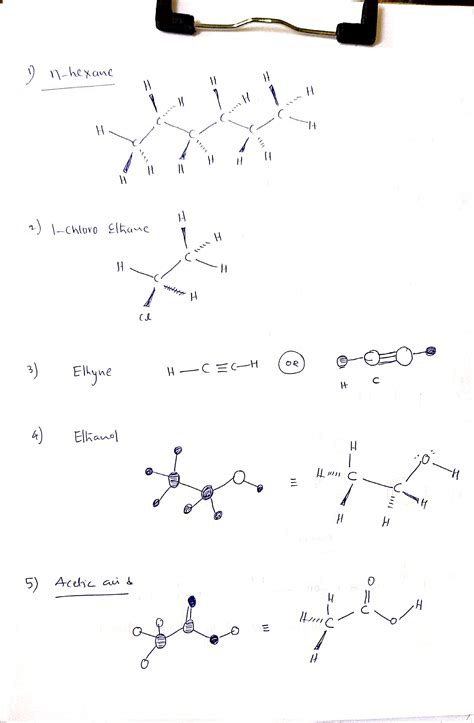 1) n-hexane
H H H H H
H C C C C C C H
H H H H H H H
2) 1-chloro Ethane
H
H
C
H H
C
H
Cl
3) Ethyne H—C≡C—H OR
H C
4) Ethanol
H
O
H C C H
≡
H H H
5) Acetic acid
O
H H
H C C O
≡
H